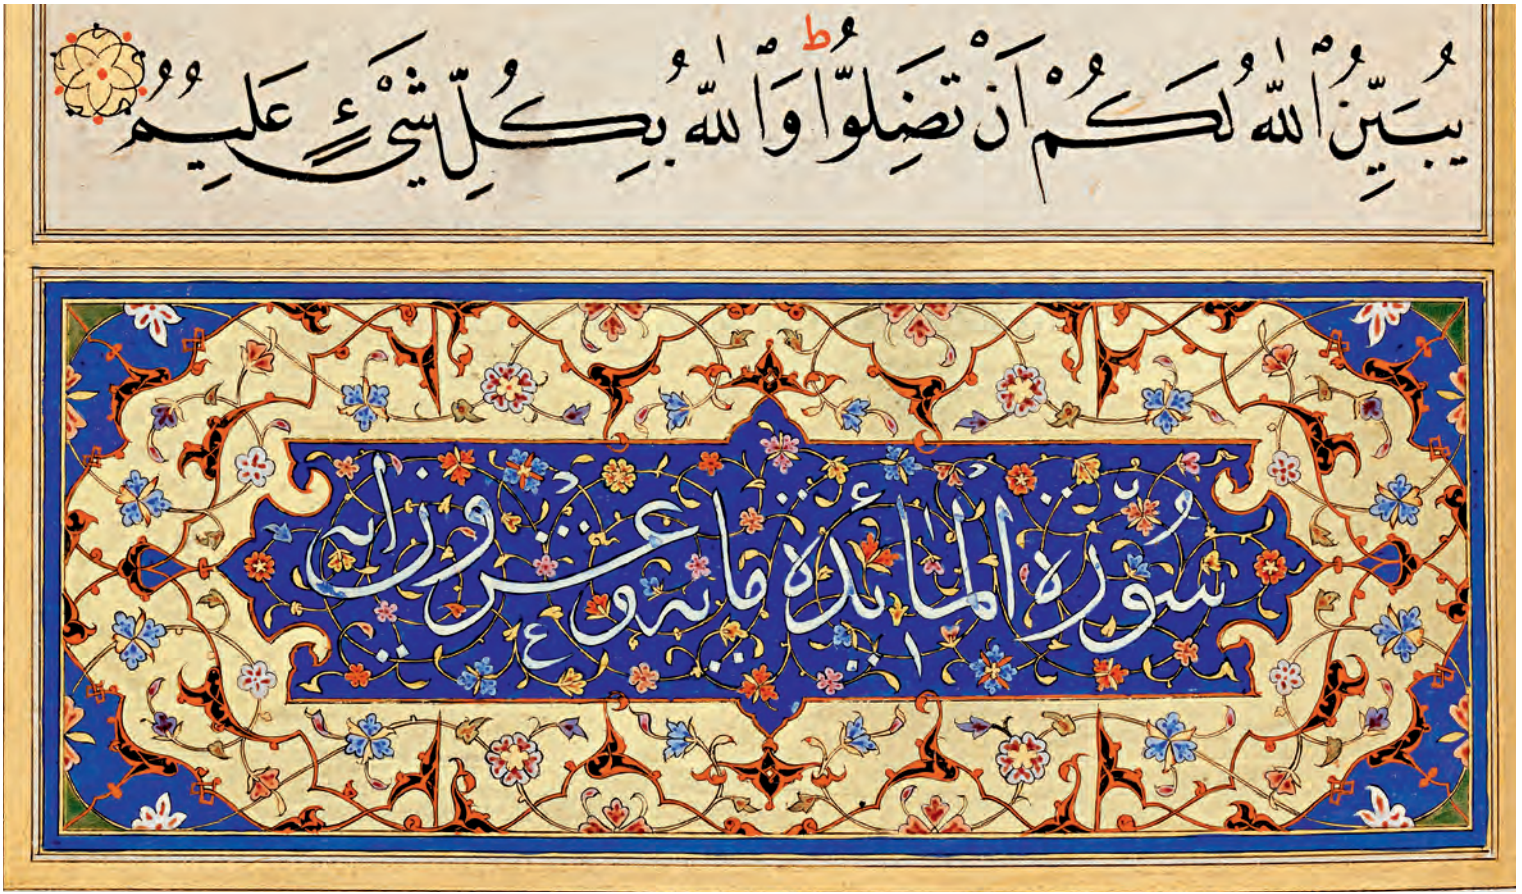 يُبَيِّنُ ٱللّٰهُ لَكُمْ اَنْ تَضِلُّوا ط وَٱللّٰهُ بِكُلِّ شَيْءٍ عَلِيمٌ
سُورَة الْمَائدة مايه وعشرون ايه